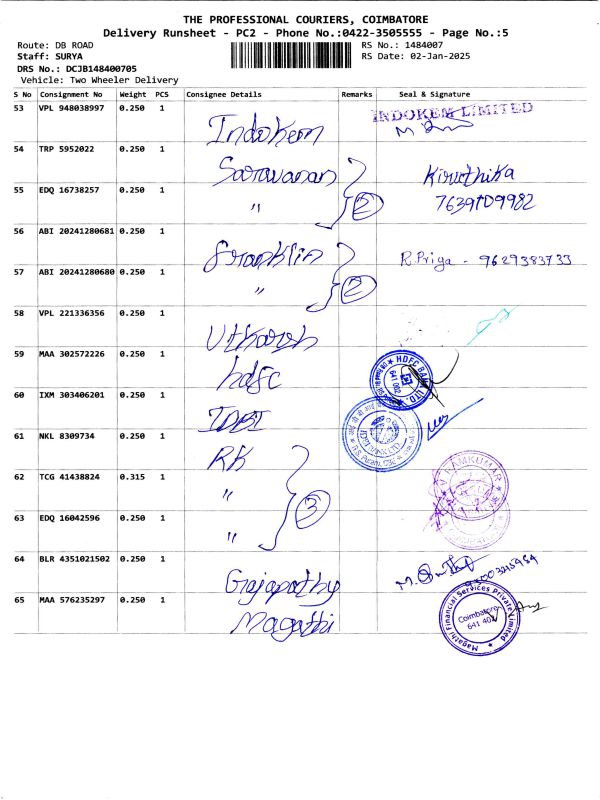 THE PROFESSIONAL COURIERS, COIMBATORE
Delivery Runsheet - PC2 - Phone No.:0422-3505555 - Page No.:5
Route: DB ROAD RS No.: 1484007
Staff: SURYA RS Date: 02-Jan-2025
DRS No.: DCJB148400705
Vehicle: Two Wheeler Delivery
S No Consignment No Weight PCS Consignee Details Remarks Seal & Signature
53 VPL 948038997 0.250 1 Indokem INDOKEM LIMITED
54 TRP 5952022 0.250 1 Saravanan Kiruthika
55 EDQ 16738257 0.250 1 " 2 7639109982
56 ABI 20241280681 0.250 1 Franklin R.Priya - 9629383733
57 ABI 20241280680 0.250 1 " 2
58 VPL 221336356 0.250 1 Utkarsh
59 MAA 302572226 0.250 1 hdfc HDFC BANK LTD. 641 002
60 IXM 303406201 0.250 1 IDBI IDBI BANK LTD.
61 NKL 8309734 0.250 1 RK
62 TCG 41438824 0.315 1 " 3
63 EDQ 16042596 0.250 1 "
64 BLR 4351021502 0.250 1 Gajapathy
65 MAA 576235297 0.250 1 Magathi Magathi Financial Services Private Limited Coimbatore